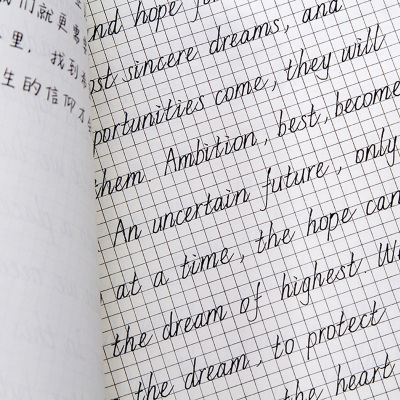 们就更
里，找到
生的信仰
and hope
sincere dreams, and
opportunities come, they will
them. Ambition, best, become
An uncertain future, only
at a time, the hope can
the dream of highest. W
the dream, to protect
the heart